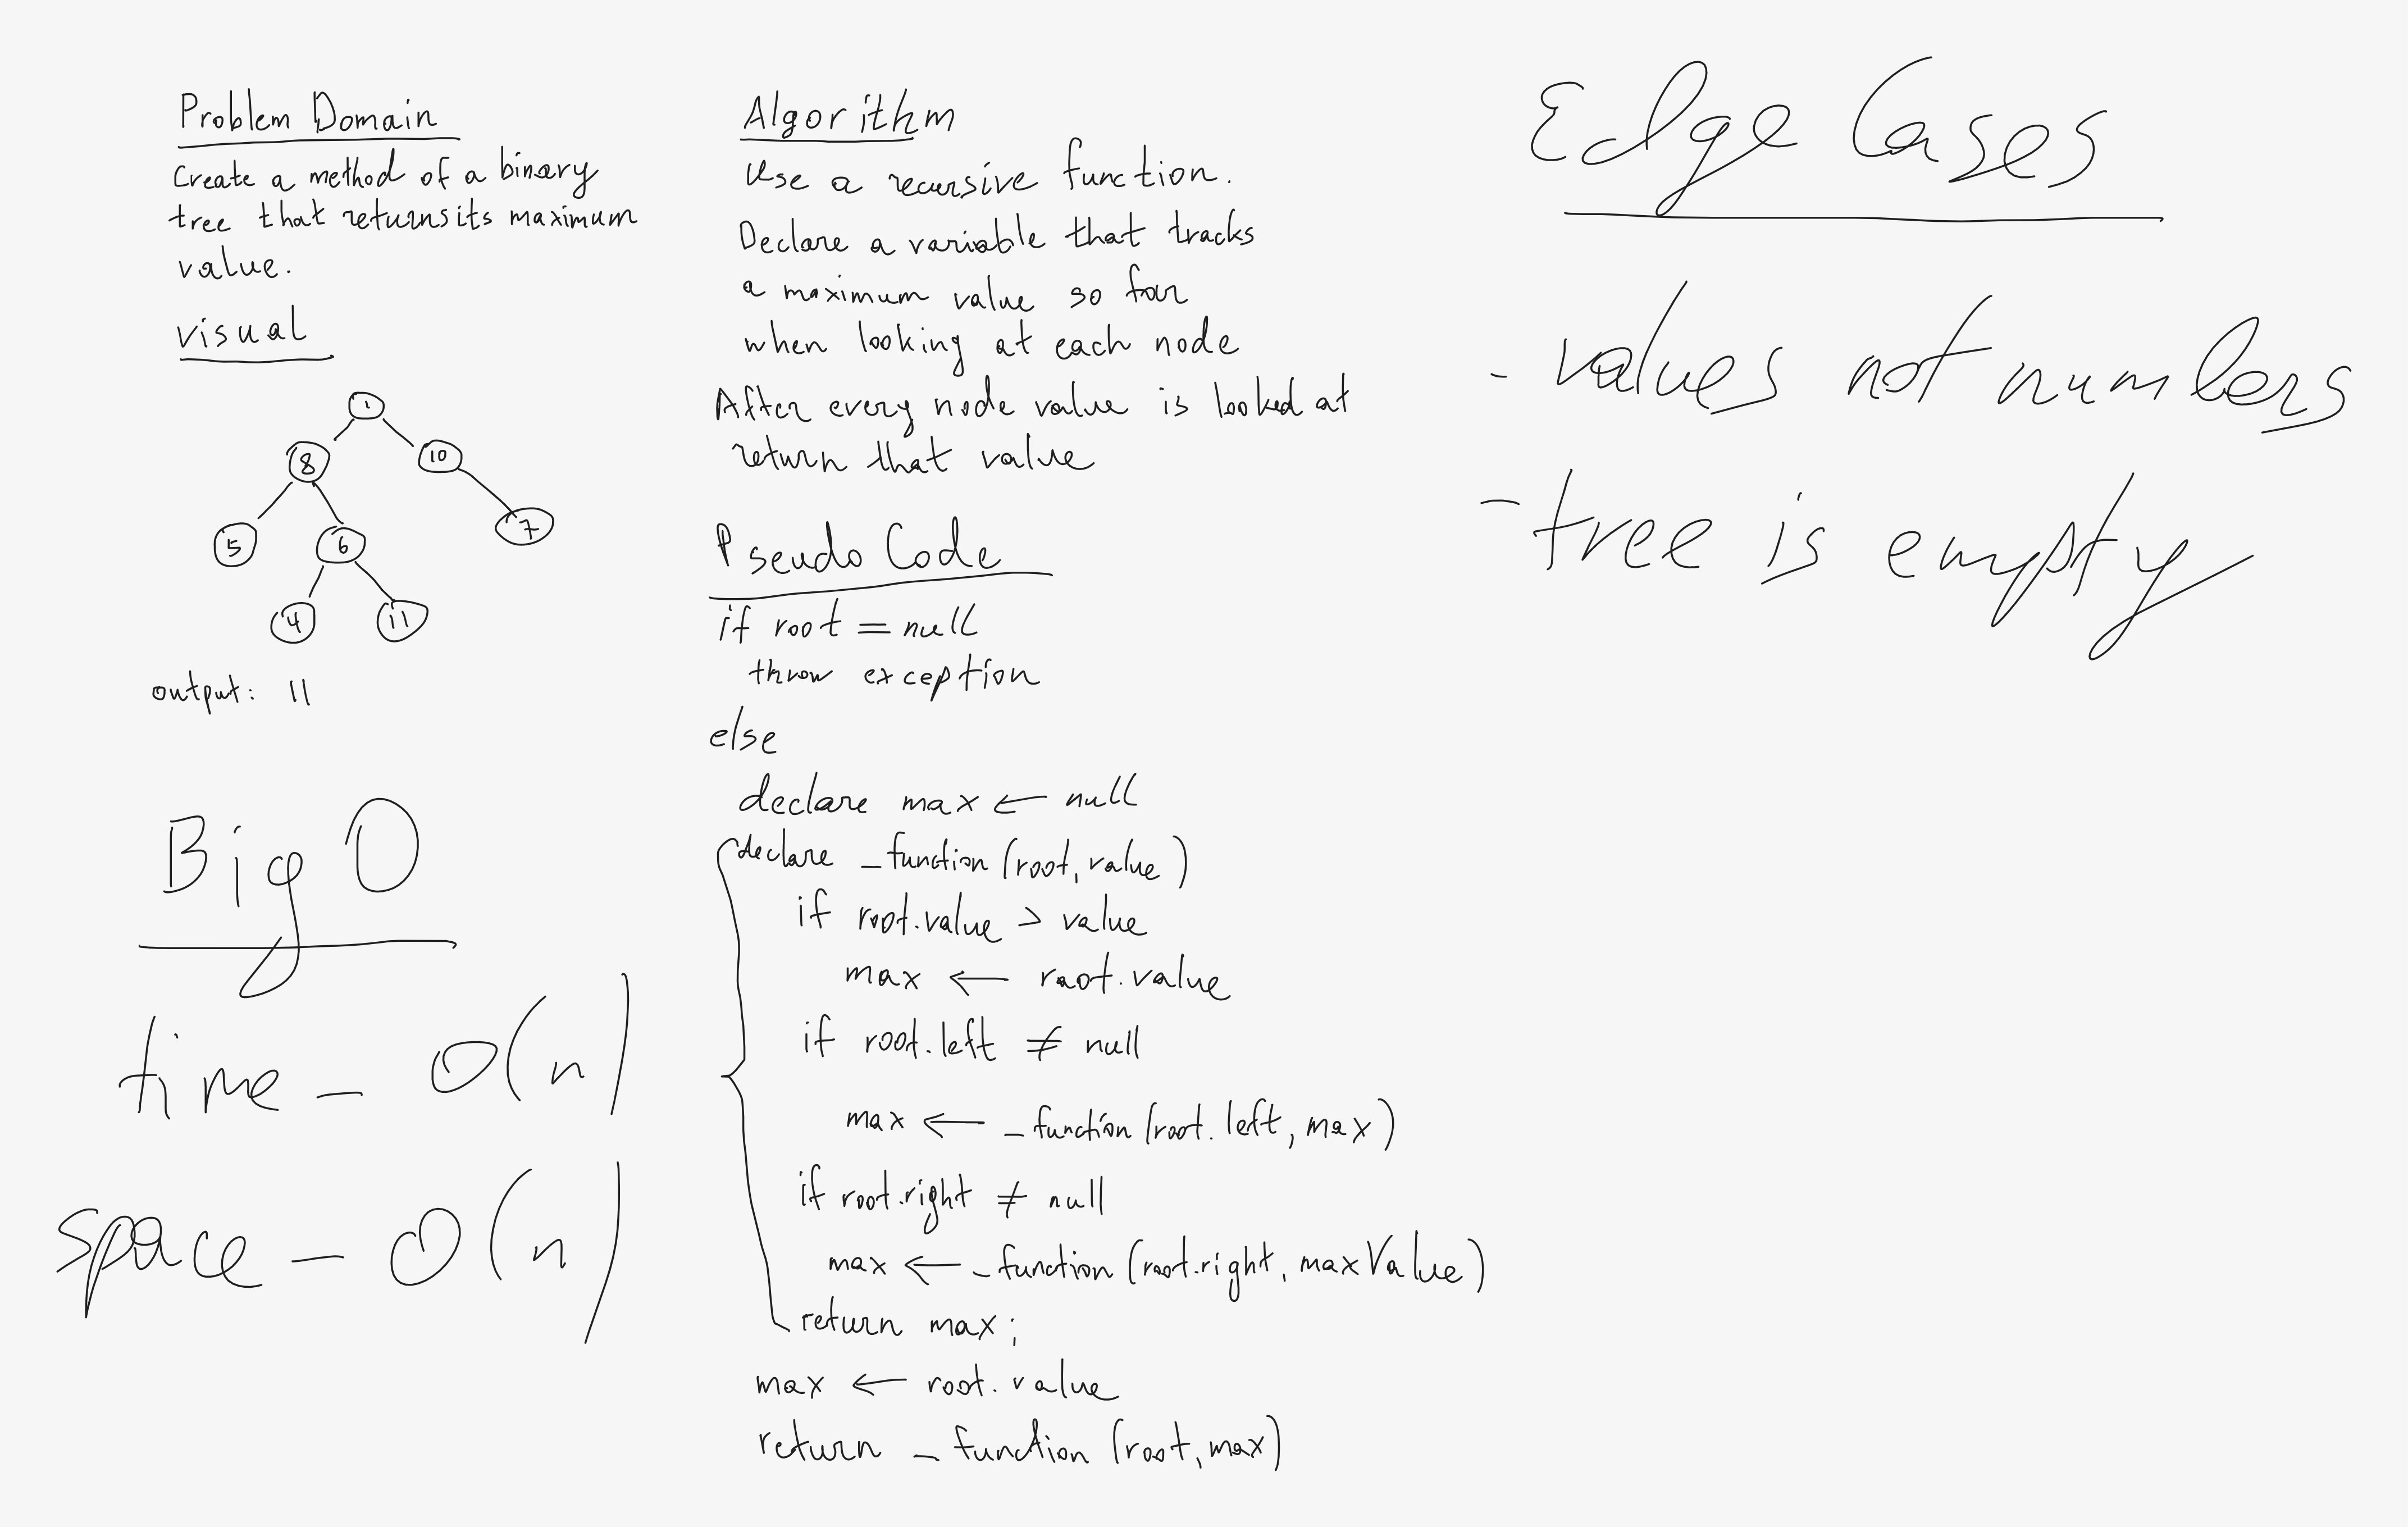 Problem Domain
Create a method of a binary
tree that returns its maximum
value.
visual
1
8
10
5
6
7
4
11
output: 11
Big O
time - O(n)
space - O(n)
Algorithm
Use a recursive function.
Declare a variable that tracks
a maximum value so far
when looking at each node
After every node value is looked at
return that value
Pseudo Code
if root = null
throw exception
else
declare max ← null
declare _function (root, value)
if root.value > value
max ← root.value
if root.left ≠ null
max ← _function (root.left, max)
if root.right ≠ null
max ← _function (root.right, maxValue)
return max;
max ← root.value
return _function (root, max)
Edge Cases
- values not numbers
- tree is empty